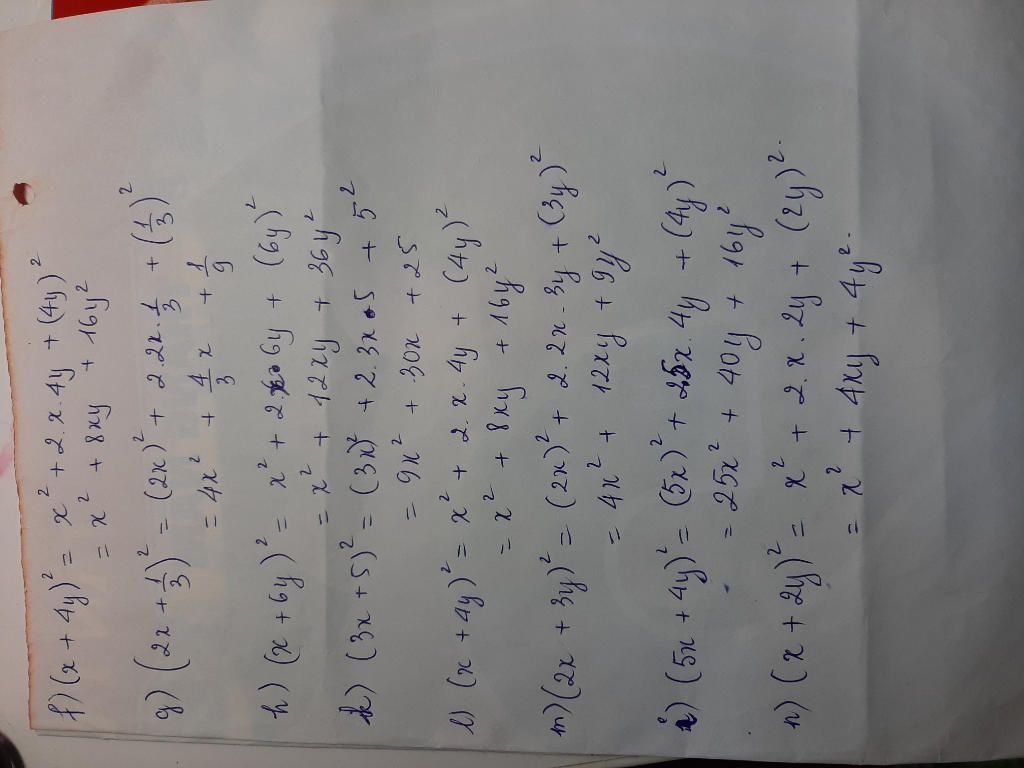 f) (x + 4y)² = x² + 2.x.4y + (4y)²
= x² + 8xy + 16y²
g) (2x + 1/3)² = (2x)² + 2.2x.1/3 + (1/3)²
= 4x² + 4/3 x + 1/9
h) (x + 6y)² = x² + 2x.6y + (6y)²
= x² + 12xy + 36y²
k) (3x + 5)² = (3x)² + 2.3x.5 + 5²
= 9x² + 30x + 25
l) (x + 4y)² = x² + 2.x.4y + (4y)²
= x² + 8xy + 16y²
m) (2x + 3y)² = (2x)² + 2.2x.3y + (3y)²
= 4x² + 12xy + 9y²
i) (5x + 4y)² = (5x)² + 2.5x.4y + (4y)²
= 25x² + 40y + 16y²
n) (x + 2y)² = x² + 2.x.2y + (2y)².
= x² + 4xy + 4y².